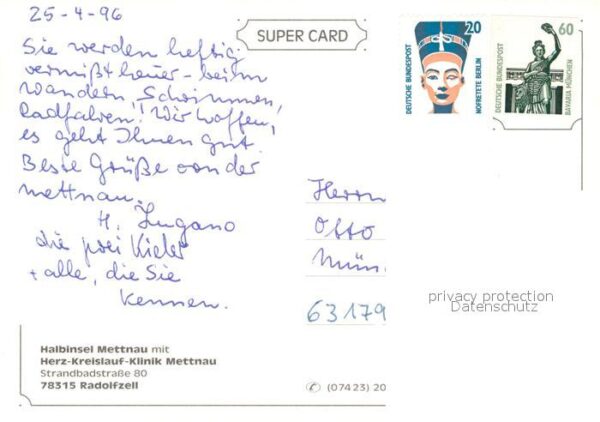 25-4-96
Sie werden heftig
vermißt heuer - beim
Wandern, Schwimmen,
Radfahren! Wir hoffen,
es geht Ihnen gut.
Beste Grüße von der
Mettnau.
H. Lugano
die zwei Kieler
+ alle, die Sie
kennen.
SUPER CARD
20
DEUTSCHE BUNDESPOST
NOFRETETE BERLIN
60
DEUTSCHE BUNDESPOST
BAVARIA MÜNCHEN
Herrn
Otto
63179
privacy protection
Datenschutz
Halbinsel Mettnau mit
Herz-Kreislauf-Klinik Mettnau
Strandbadstraße 80
78315 Radolfzell
✆ (07423) 20